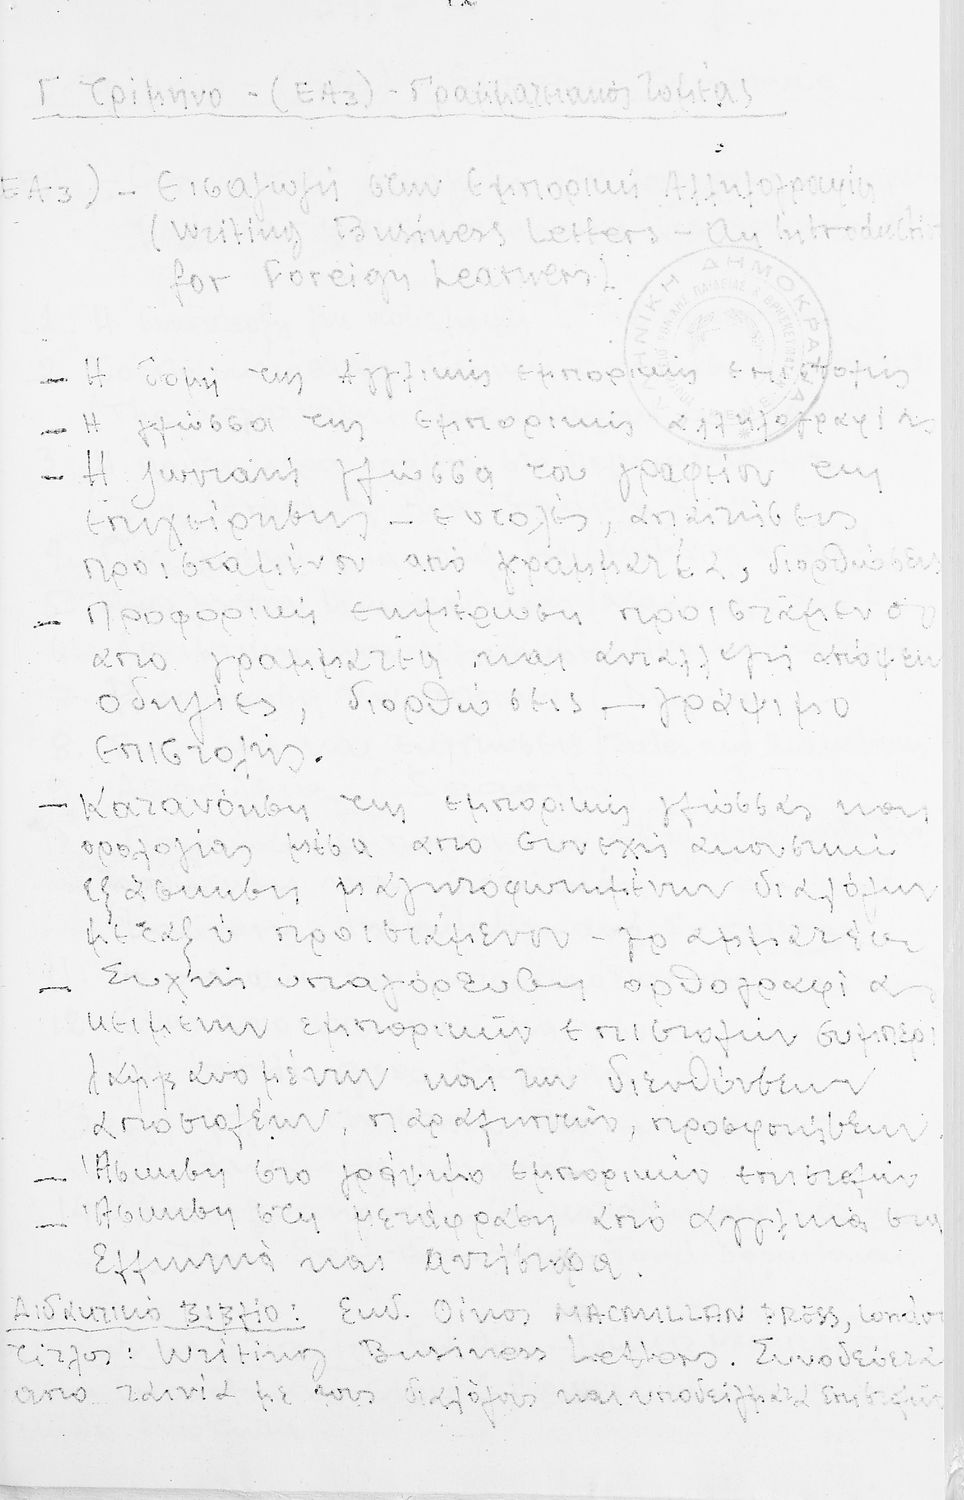 Γ Τρίμηνο - (ΕΑ3) - Γραμματειακός Τομέας
ΕΑ3) - Εισαγωγή στην Εμπορική Αλληλογραφία
(Writing Business Letters - An Introduction
for Foreign Learners)
- Η δομή της Αγγλικής εμπορικής επιστολής
- Η γλώσσα της εμπορικής αλληλογραφίας
- Η ζωντανή γλώσσα του γραφείου της
επιχείρησης - εντολές, απαιτήσεις
προισταμένου από γραμματέα, διορθώσεις
- Προφορική ενημέρωση προιστάμενου
από γραμματέα και ανταλλαγή απόψεων
οδηγίες, διορθώσεις - γράψιμο
επιστολής.
- Κατανόηση της εμπορικής γλώσσας και
ορολογίας μέσα από συνεχή ακουστική
εξάσκηση μαγνητοφωνημένων διαλόγων
μεταξύ προιστάμενου - γραμματέων
- Συχνή υπαγόρευση ορθογραφίας
κειμένων εμπορικών επιστολών συμπερι
λαμβανομένων και των διευθύνσεων
αποστολέων, παραληπτών, προσφωνήσεων.
- Άσκηση στο γράψιμο εμπορικών επιστολών
- Άσκηση στη μετάφραση από αγγλικά στα
Ελληνικά και αντίστροφα.
Διδακτικό Βιβλίο: Εκδ. Οίκος MACMILLAN PRESS, London
Τίτλος: Writing Business Letters. Συνοδεύεται
από ταινία με τους διαλόγους και υποδείγματα επιστολών
ΕΛΛΗΝΙΚΗ ΔΗΜΟΚΡΑΤΙΑ